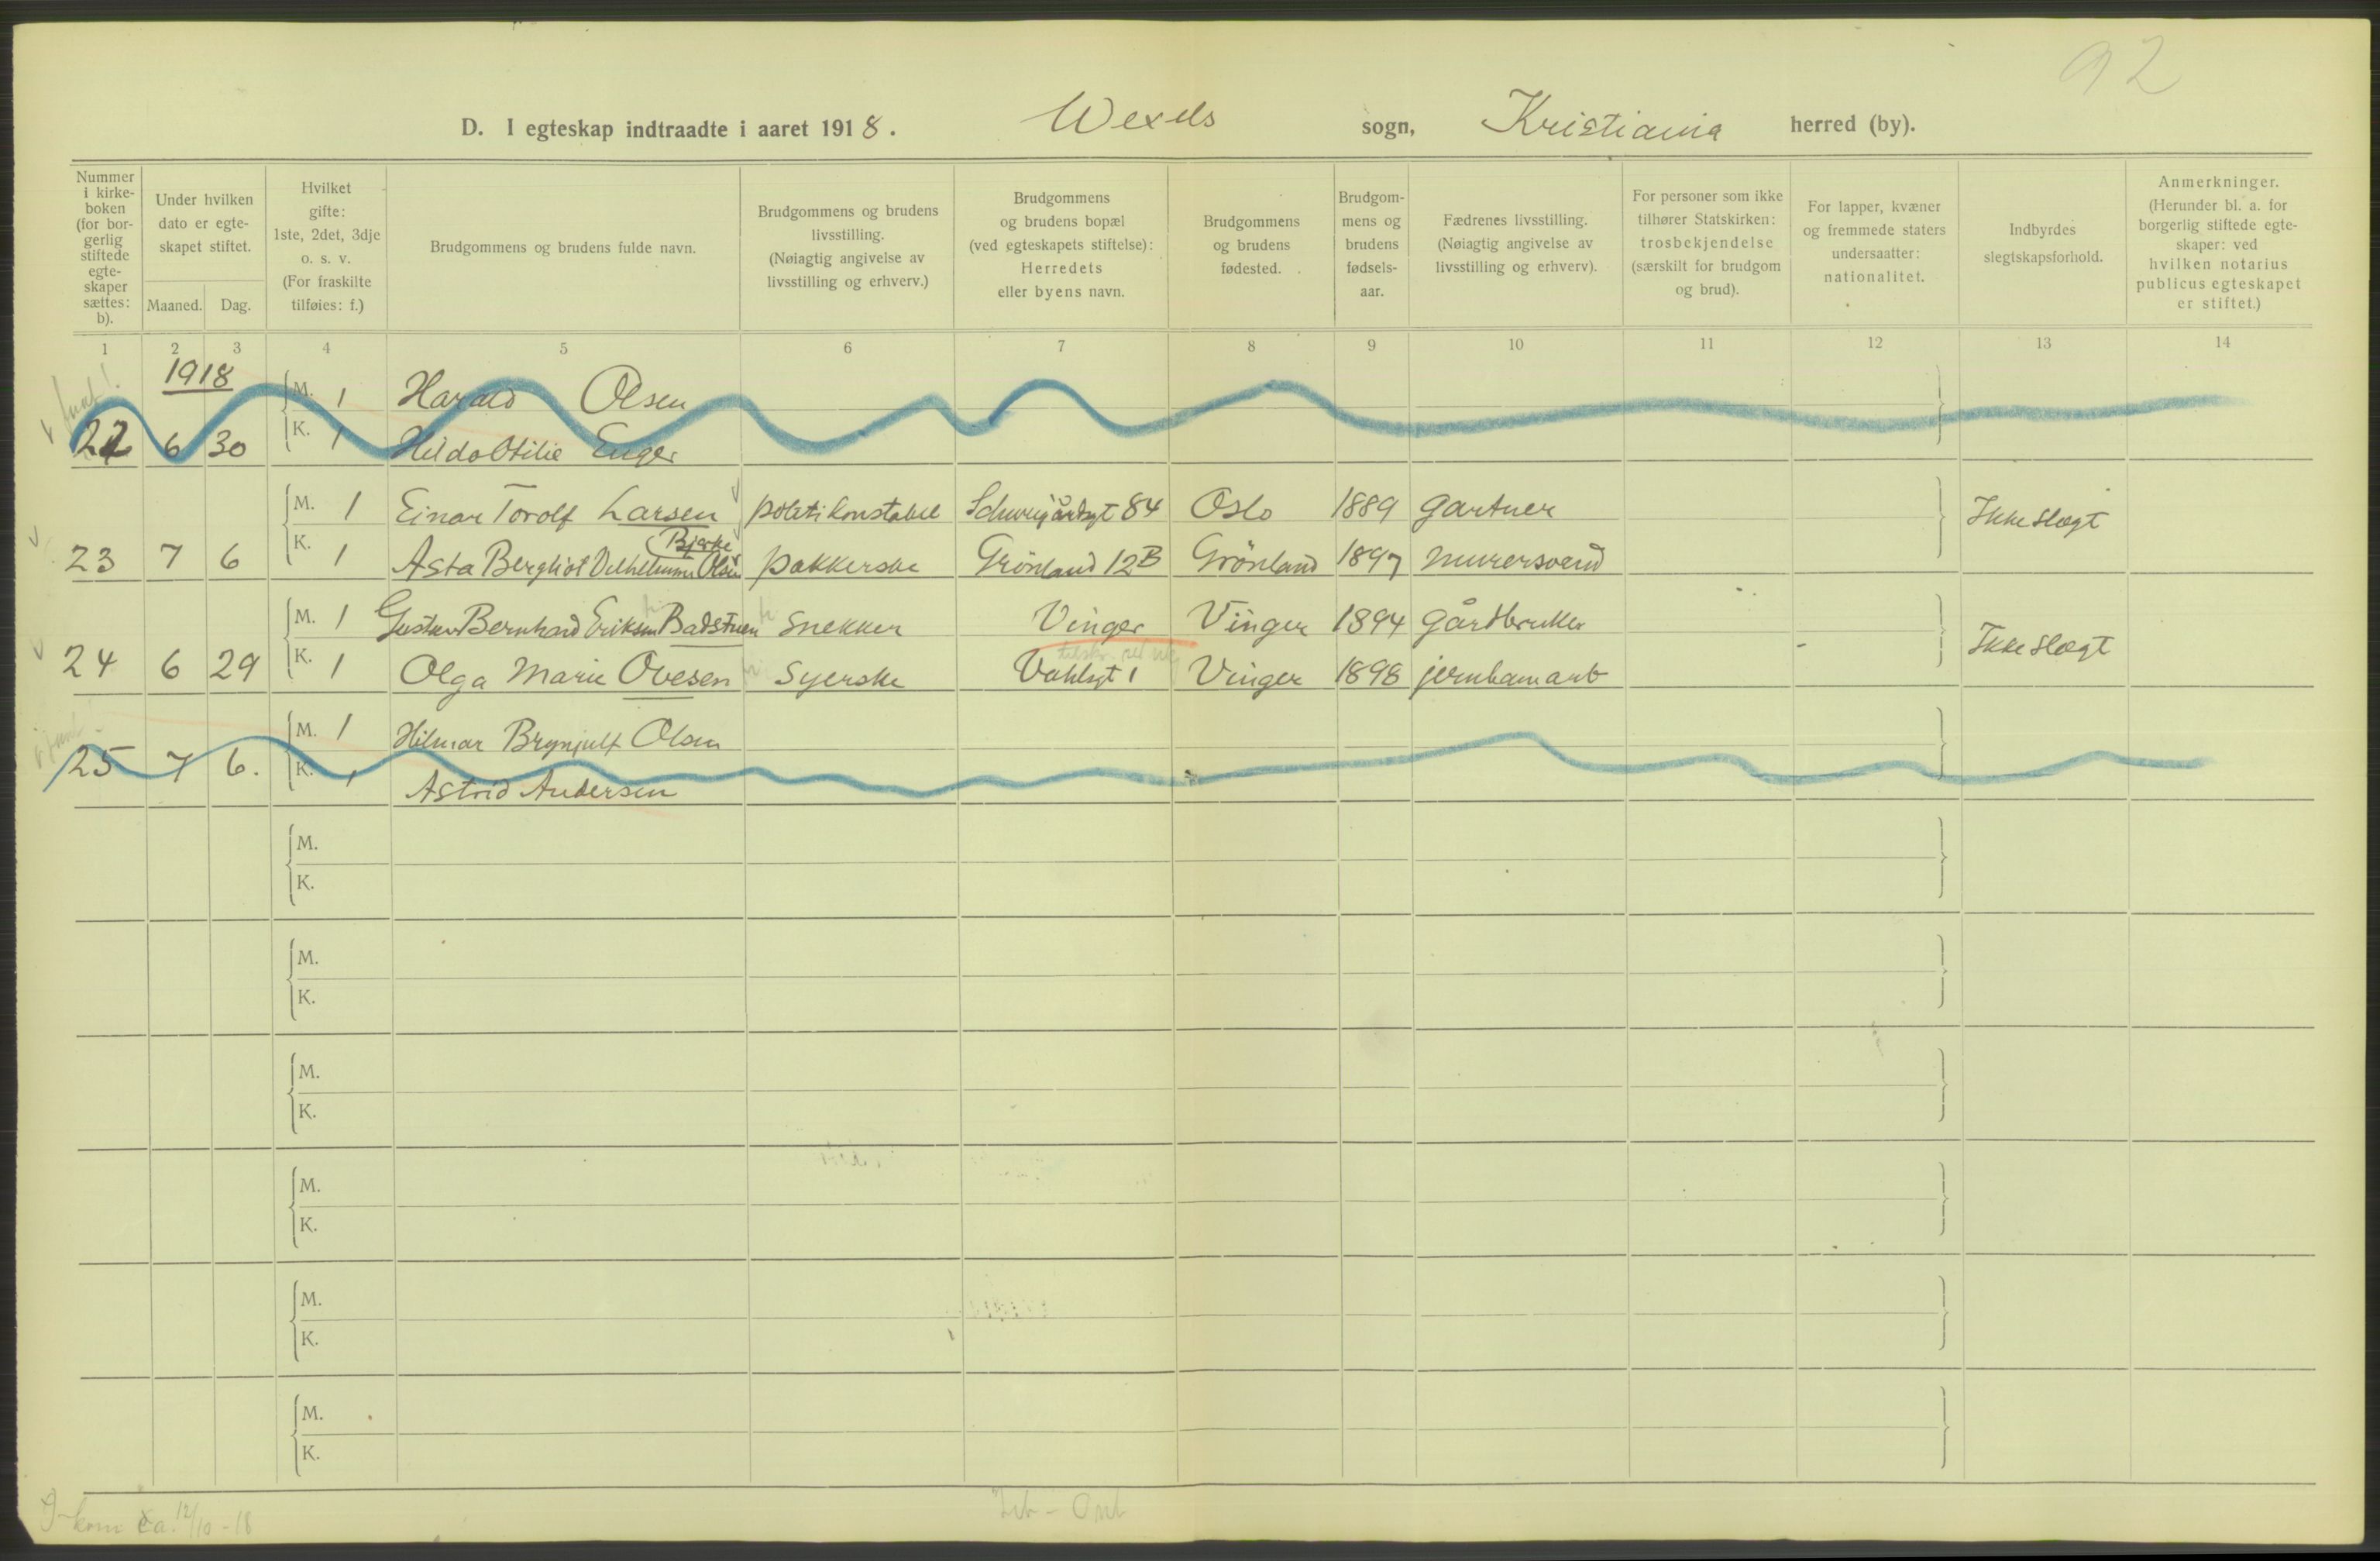 92
D. I egteskap indtraadte i aaret 1918. Wexels sogn, Kristiania herred (by).
Nummer i kirke-boken (for bor-gerlig stiftede egte-skaper sættes: b).
Under hvilken dato er egte-skapet stiftet.
Maaned. Dag.
Hvilket gifte: 1ste, 2det, 3dje o. s. v. (For fraskilte tilføies: f.)
Brudgommens og brudens fulde navn.
Brudgommens og brudens livsstilling. (Nøiagtig angivelse av livsstilling og erhverv.)
Brudgommens og brudens bopæl (ved egteskapets stiftelse): Herredets eller byens navn.
Brudgommens og brudens fødested.
Brudgom-mens og brudens fødsels-aar.
Fædrenes livsstilling. (Nøiagtig angivelse av livsstilling og erhverv).
For personer som ikke tilhører Statskirken: trosbekjendelse (særskilt for brudgom og brud).
For lapper, kvæner og fremmede staters undersaatter: nationalitet.
Indbyrdes slegtskapsforhold.
Anmerkninger. (Herunder bl. a. for borgerlig stiftede egte-skaper: ved hvilken notarius publicus egteskapet er stiftet.)
1 2 3 4 5 6 7 8 9 10 11 12 13 14
1918
M. 1 Harald Olsen
22 6 30 K. 1 Hilda Otilie Enger
M. 1 Einar Torolf Larsen politikonstabel Schweigårdsgt 84 Oslo 1889 gartner Ikke slægt
Bjerke
23 7 6 K. 1 Asta Bergliot Vilhelmine Olsen pakkerske Grönland 12B Grönland 1897 murersvend
M. 1 Gustav Bernhard Eriksen Badstuen snekker Vinger Vinger 1894 gårdbruker Ikke slægt
24 6 29 K. 1 Olga Marie Ovesen syerske Vahlsgt 1 Vinger 1898 jernbanearb
M. 1 Hilmar Brynjulf Olsen
25 7 6. K. 1 Astrid Andersen
M.
K.
M.
K.
M.
K.
M.
K.
M.
K.
M.
K.
12/10-18